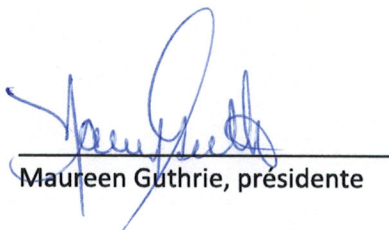 Maureen Guthrie, présidente